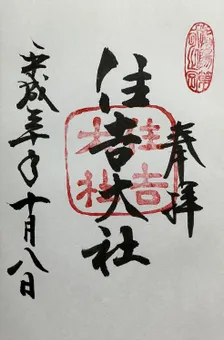 奉拝
住吉大社
住吉
大社
平成三十年十月八日